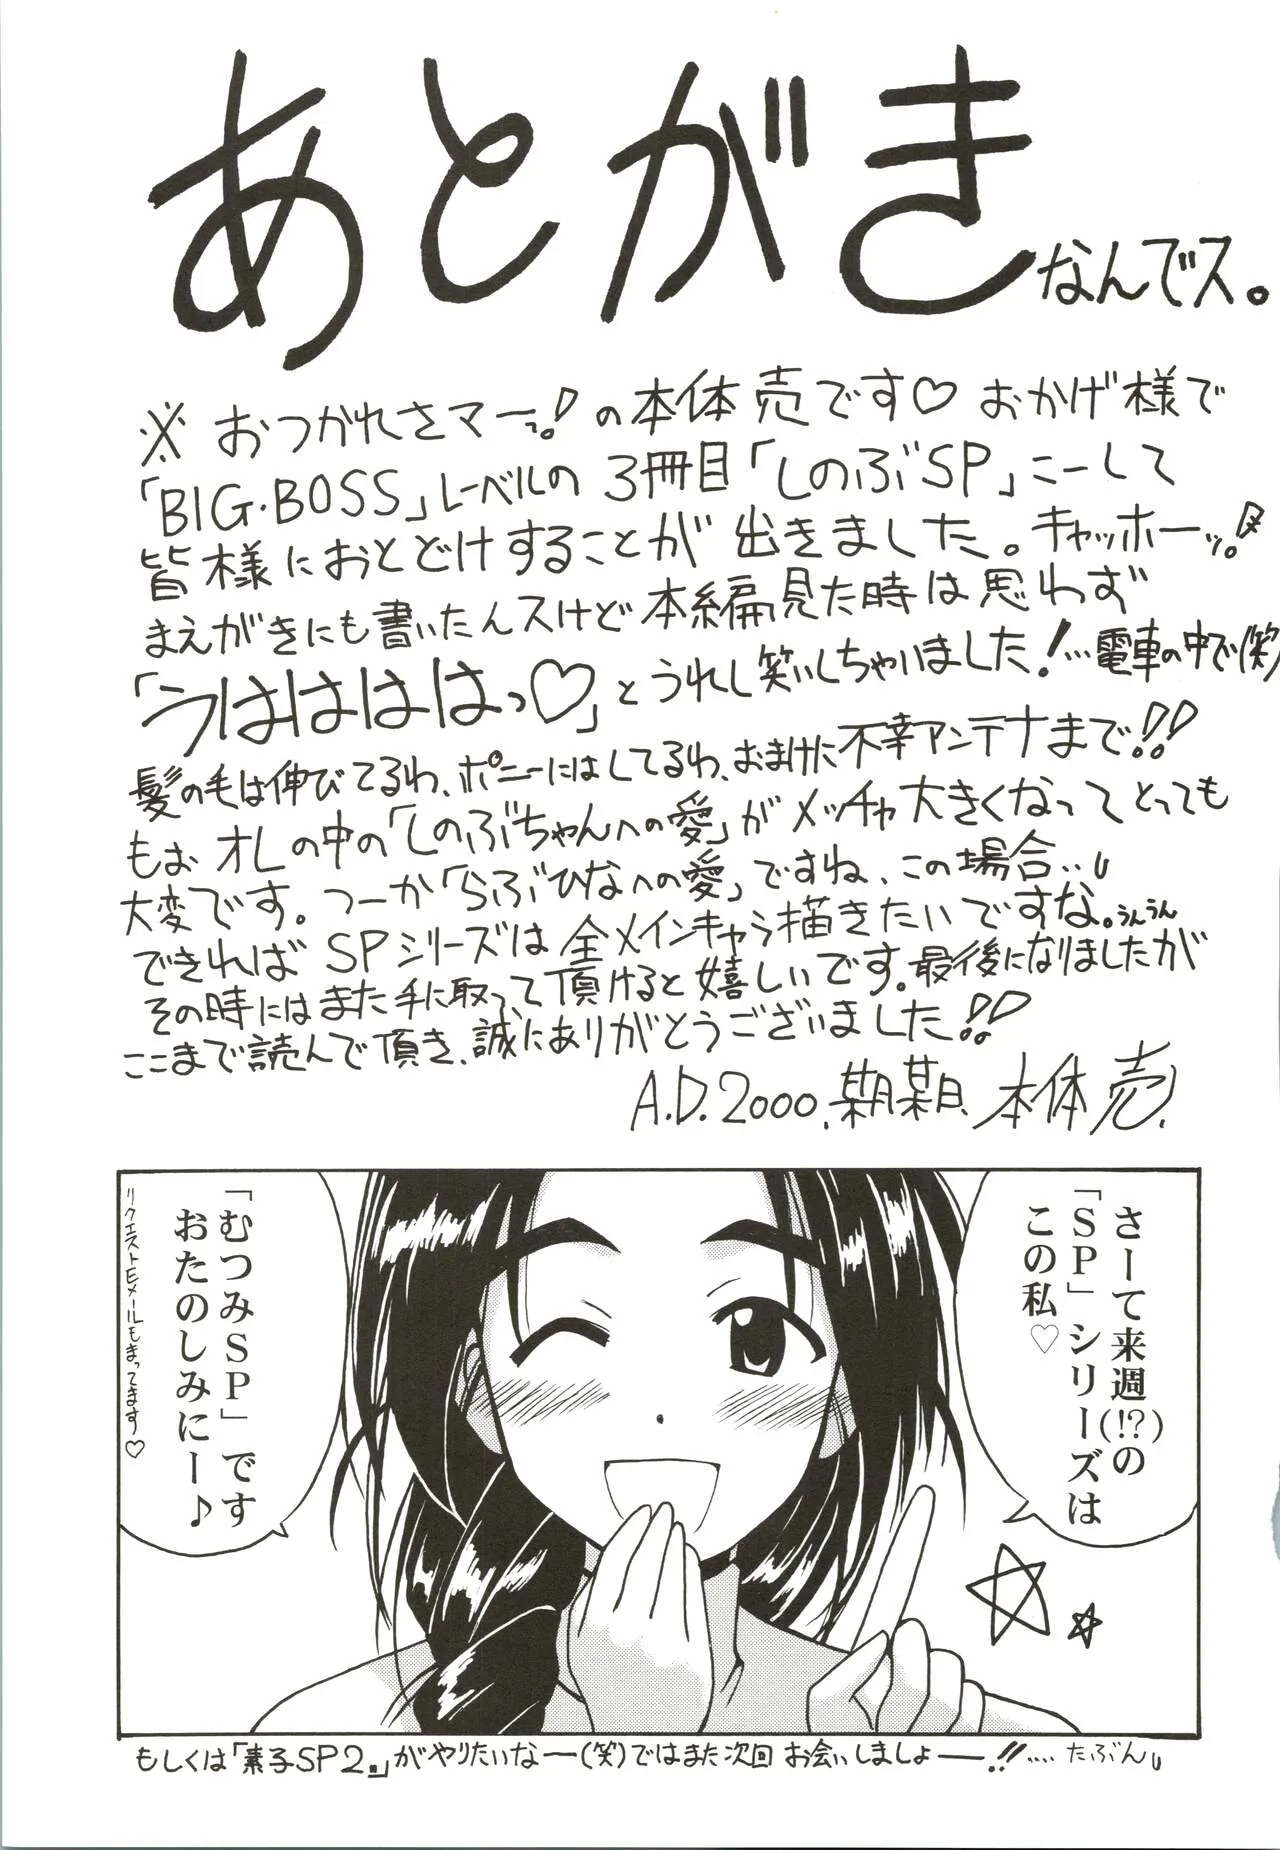 あとがきなんでス。
※おつかれさマーっ!の本体売です♡おかげ様で
「BIG・BOSS」レーベルの3冊目「しのぶSP」こーして
皆様におとどけすることが出きました。キャッホーッ!
まえがきにも書いたんスけど本編見た時は思わず
「うはははっ♡」とうれし笑いしちゃいました!…電車の中で(笑)
髪の毛は伸びてるわ、ポニーにはしてるわ、おまけに不幸アンテナまで!!
もぉオレの中の「しのぶちゃんへの愛」がメッチャ大きくなってとっても
大変です。つーか「らぶひなへの愛」ですね、この場合…
できればSPシリーズは全メインキャラ描きたいですな。うんうん
その時にはまた手に取って頂けると嬉しいです。最後になりましたが
ここまで読んで頂き、誠にありがとうございました!!
A.D.2000.某月某日.本体売.
さーて来週(!?)の
「SP」シリーズは
この私♡
「むつみSP」です
おたのしみにー♪
リクエストEメールもまってます♡
もしくは「素子SP2。」がやりたいなー(笑)ではまた次回お会いしましょー!!……たぶん